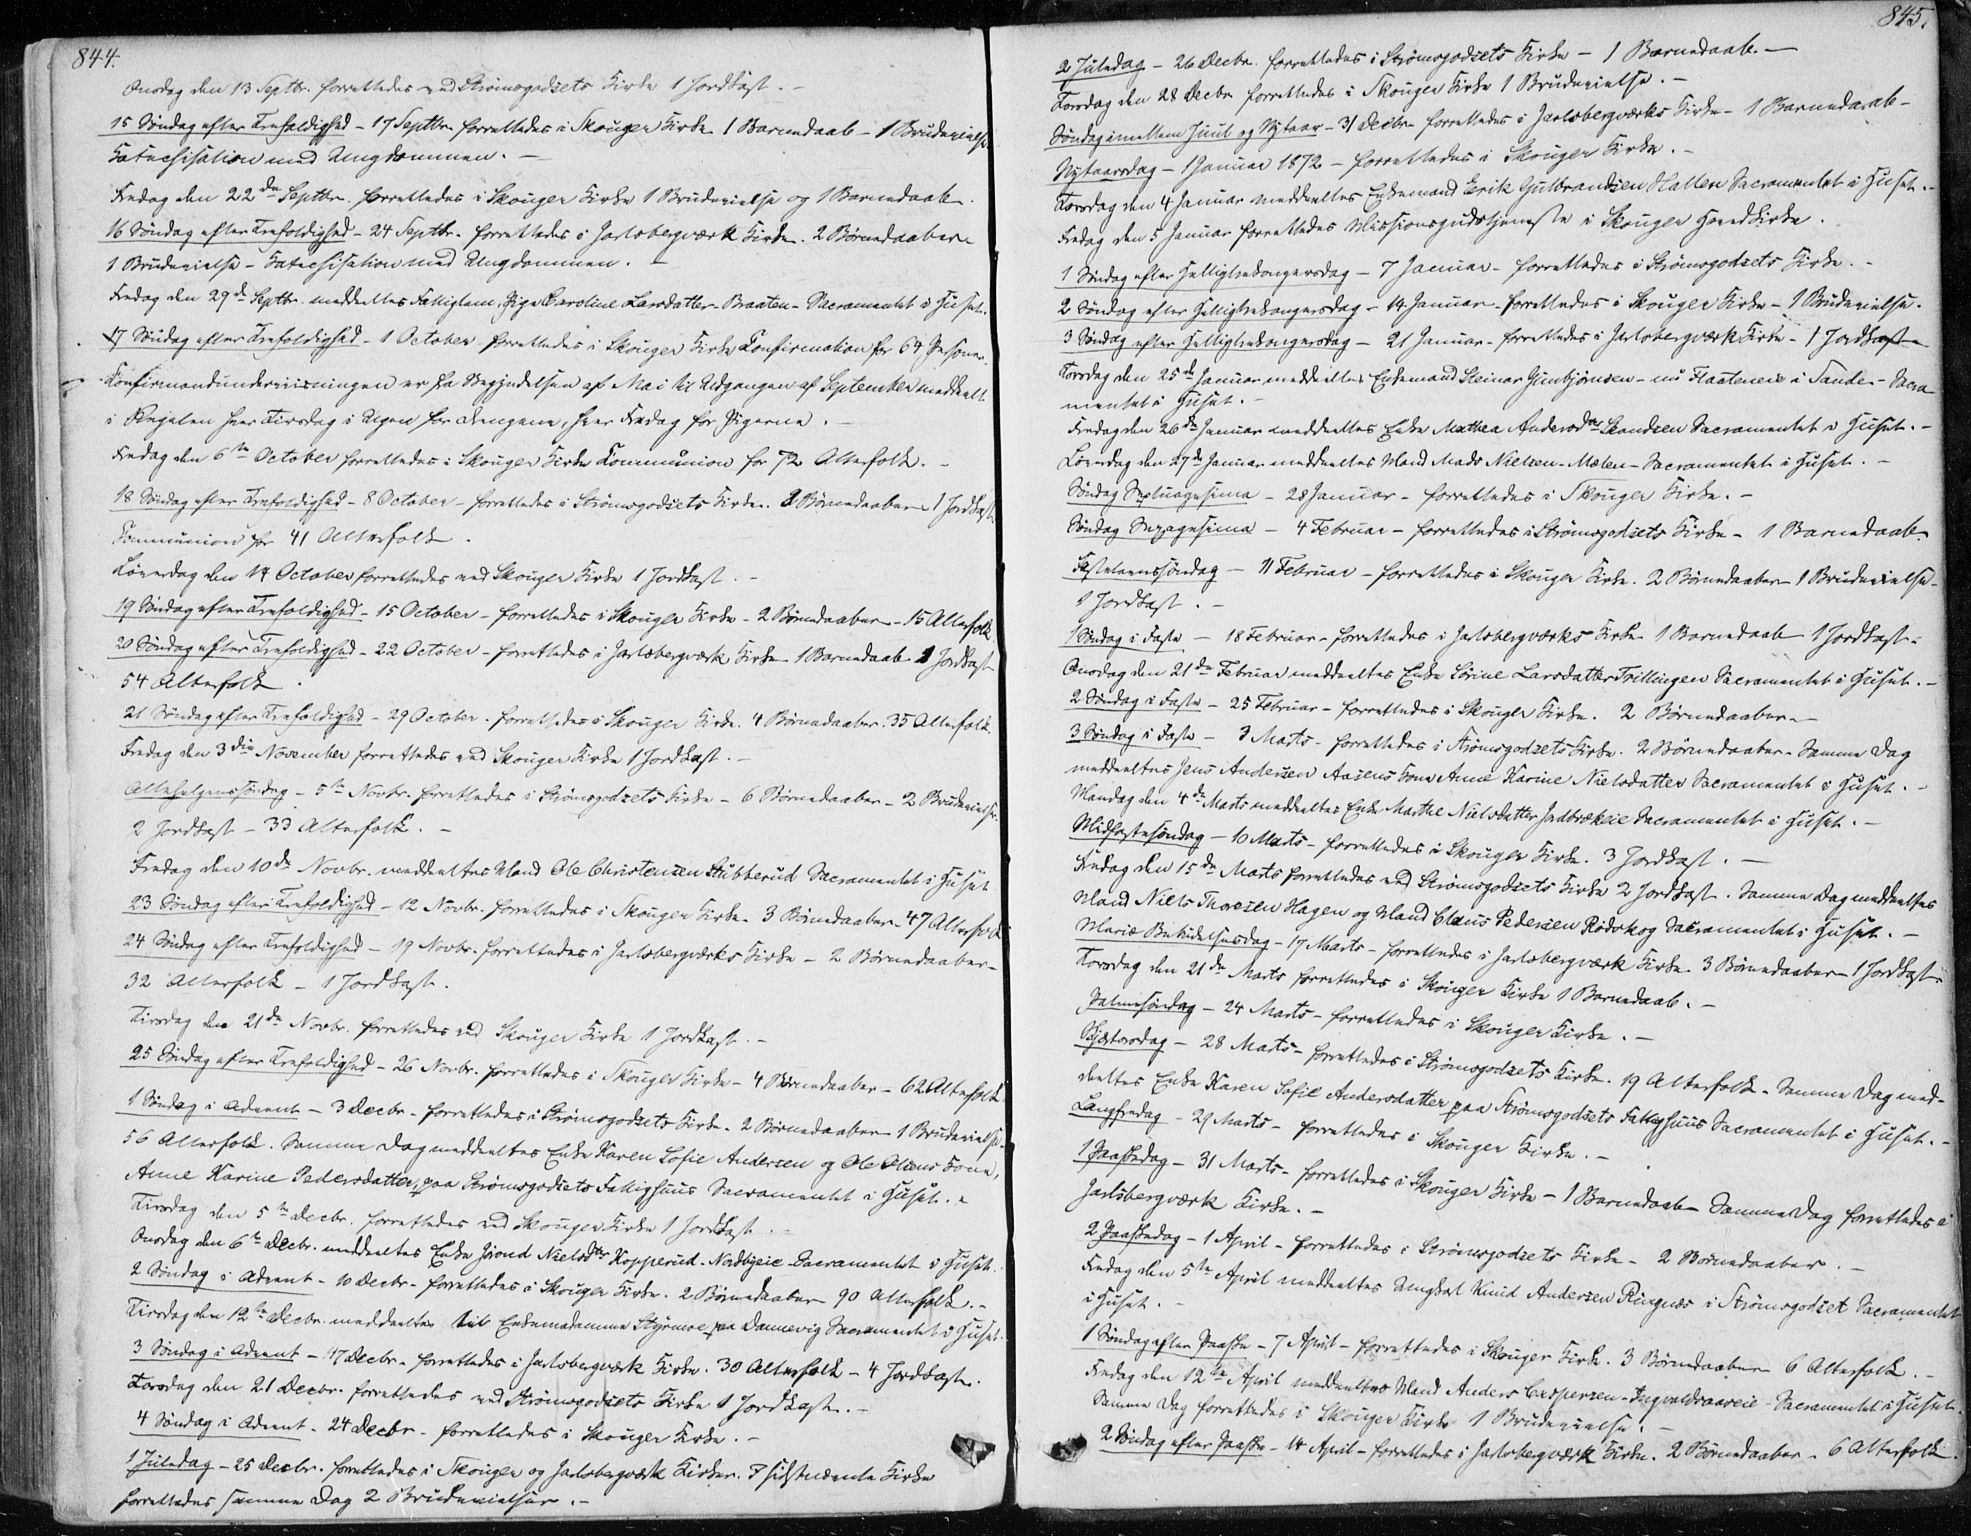 844.
Onsdag den 13 Septbr. forrettedes ved Strømsgodsets Kirke 1 Jordkast. –
15 Søndag efter Trefoldighed – 17 Septbr. forrettedes i Skouger Kirke 1 Barnedaab – 1 Brudevielse
Katechisation med Ungdommen. –
Fredag den 22de Septbr. forrettedes i Skouger Kirke 1 Brudevielse og 1 Barnedaab.
16 Søndag efter Trefoldighed – 24 Septbr. forrettedes i Jarlsbergværk Kirke. 2 Børnedaaber –
1 Brudevielse – Katechisation med Ungdommen. –
Fredag den 29de Septbr. meddeeltes Fattiglem, Pige Caroline Larsdatter Braaten – Sacramentet i Huset.
17 Søndag efter Trefoldighed – 1 October forrettedes i Skouger Kirke Confirmation for 64 Personer.
Confirmandundervisningen er fra Begyndelsen af Mai til Udgangen af September meddeelt
i Regelen hver Tirsdag i Ugen for Drengene, hver Fredag for Pigerne. –
Fredag den 6te October forrettedes i Skouger Kirke Communion for 72 Alterfolk. –
18 Søndag efter Trefoldighed – 8 October – forrettedes i Strømsgodsets Kirke. 2 Børnedaaber – 1 Jordkast
Communion for 41 Alterfolk.
Løverdag den 14 October forrettedes ved Skouger Kirke 1 Jordkast. –
19 Søndag efter Trefoldighed – 15 October – forrettedes i Skouger Kirke – 2 Børnedaaber – 15 Alterfolk
20 Søndag efter Trefoldighed – 22 October – forrettedes i Jarlsbergværk Kirke – 1 Barnedaab 1 Jordkast
54 Alterfolk.
21 Søndag efter Trefoldighed – 29 October – forrettedes i Skouger Kirke. 4 Børnedaaber. 35 Alterfolk
Fredag den 3die November forrettedes ved Skouger Kirke 1 Jordkast. –
Allehelgenssøndag – 5te Novbr. forrettedes i Strømsgodsets Kirke – 6 Børnedaaber – 2 Brudevielser.
2 Jordkast – 33 Alterfolk. –
Fredag den 10de Novbr. meddeeltes Mand Ole Christensen Stubberud Sacramentet i Huset
23 Søndag efter Trefoldighed – 12 Novbr. forrettedes i Skouger Kirke – 3 Børnedaaber – 47 Alterfolk
24 Søndag efter Trefoldighed – 19 Novbr. forrettedes i Jarlsbergværks Kirke – 2 Børnedaaber –
32 Alterfolk – 1 Jordkast.
Tirsdag den 21de Novbr. forrettedes ved Skouger Kirke 1 Jordkast. –
25 Søndag efter Trefoldighed – 26 Novbr. forrettedes i Skouger Kirke – 4 Børnedaaber – 62 Alterfolk
1 Søndag i Advent – 3 Decbr. – forrettedes i Strømsgodsets Kirke. 2 Børnedaaber – 1 Brudevielse.
56 Alterfolk. Samme Dag meddeeltes Enke Karen Sofie Andersen og Ole Olsens Kone,
Anne Karine Pedersdatter, paa Strømsgodsets Fattighuus Sacramentet i Huset. –
Tirsdag den 5te Decbr. forrettedes ved Skouger Kirke 1 Jordkast. –
Onsdag den 6te Decbr. meddeeltes Enke Jørond Nielsdtr Kopperud – Nordbyeie – Sacramentet i Huset.
2 Søndag i Advent – 10 Decbr – forrettedes i Skouger Kirke. 2 Børnedaaber – 90 Alterfolk. –
Tirsdag den 12te Decbr. meddeeltes Enkemadamme Styrmoe paa Dannevig Sacramentet i Huset.
3 Søndag i Advent – 17 Decbr – forrettedes i Jarlsbergværk Kirke. 30 Alterfolk – 4 Jordkast.
Torsdag den 21 Decbr. forrettedes ved Strømsgodsets Kirke 1 Jordkast. –
4 Søndag i Advent – 24 Decbr – forrettedes i Skouger Kirke. –
1 Juledag – 25 Decbr. forrettedes i Skouger og Jarlsbergværk Kirker. I sidstnævnte Kirke
forrettedes samme Dag 2 Brudevielser. –
845.
2 Juledag – 26 Decbr. forrettedes i Strømsgodsets Kirke – 1 Barnedaab. –
Torsdag den 28 Decbr forrettedes i Skouger Kirke 1 Brudevielse. –
Søndag imellem Juul og Nytaar – 31 Decbr – forrettedes i Jarlsbergværks Kirke – 1 Barnedaab –
Nytaarsdag – 1 Januar 1872 – forrettedes i Skouger Kirke. –
Torsdag den 4 Januar meddeeltes Enkemand Erik Gulbrandsen Hallen Sacramentet i Huset. –
Fredag den 5 Januar forrettedes Missionsgudstjeneste i Skouger Hovedkirke.
1 Søndag efter Helligtrekongersdag – 7 Januar – forrettedes i Strømsgodsets Kirke. –
2 Søndag efter Helligtrekongersdag – 14 Januar – forrettedes i Skouger Kirke – 1 Brudevielse.
3 Søndag efter Helligtrekongersdag – 21 Januar – forrettedes i Jarlsbergværk Kirke – 1 Jordkast –
Torsdag den 25de Januar meddeeltes Enkemand Steinar Gunbjørnsen – nu Flaateneie i Sande – Sacra
mentet i Huset. –
Fredag den 26de Januar meddeeltes Enke Mathea Andersdtr Skandsen Sacramentet i Huset. –
Løverdag den 27de Januar meddeeltes Mand Mads Nielsen – Mælen – Sacramentet i Huset. –
Søndag Septuagesima – 28 Januar – forrettedes i Skouger Kirke. –
Søndag Sexagesima – 4 Februar – forrettedes i Strømsgodsets Kirke – 1 Barnedaab
Fastelavnssøndag – 11 Februar – forrettedes i Skouger Kirke. 2 Børnedaaber – 1 Brudevielse –
1 Jordkast. –
1 Søndag i Faste – 18 Februar – forrettedes i Jarlsbergværks Kirke – 1 Barnedaab – 1 Jordkast –
Onsdag den 21de Februar meddeeltes Enke Sørine Larsdatter Trillingen Sacramentet i Huset. –
2 Søndag i Faste – 25 Februar – forrettedes i Skouger Kirke. 2 Børnedaaber –
3 Søndag i Faste – 3 Marts – forrettedes i Strømsgodsets Kirke. 2 Børnedaaber – Samme Dag
meddeeltes Jens Andersen Aasens Kone Anne Karine Nielsdatter Sacramentet i Huset. –
Mandag den 4de Marts meddeeltes Enke Marthe Nielsdatter Sacramentet i Huset. –
Midfastesøndag – 10 Marts – forrettedes i Skouger Kirke. 3 Jordkast. –
Fredag den 15de Marts forrettedes ved Strømsgodsets Kirke 2 Jordkast. Samme Dag meddeeltes
Mand Niels Thoresen Hagen og Mand Claus Pedersen Rødskog Sacramentet i Huset. –
Mariæ Bebudelsesdag – 17 Marts – forrettedes i Jarlsbergværk Kirke – 3 Børnedaaber – 1 Jordkast –
Torsdag den 21de Marts forrettedes i Skouger Kirke 1 Barnedaab. –
Palmesøndag – 24 Marts – forrettedes i Skouger Kirke. –
Skjærtorsdag – 28 Marts – forrettedes i Strømsgodsets Kirke. 19 Alterfolk – Samme Dag med-
deeltes Enke Karen Sofie Andersdatter paa Strømsgodsets Fattighuus Sacramentet i Huset. –
Langfredag – 29 Marts – forrettedes i Skouger Kirke. –
1 Paaskedag – 31 Marts – forrettedes i Skouger Kirke – 1 Barnedaab – Samme Dag forrettedes i
Jarlsbergværk Kirke. –
2 Paaskedag – 1 April – forrettedes i Strømsgodsets Kirke – 2 Børnedaaber. –
Fredag den 5te April meddeeltes Ungkarl Knud Andersen Ringnæs i Strømsgodset Sacramentet
i Huset. –
1 Søndag efter Paaske – 7 April – forrettedes i Skouger Kirke. 3 Børnedaaber – 6 Alterfolk. –
Fredag den 12te April meddeeltes Mand Anders Caspersen – Sacramentet i Huset.
Samme Dag forrettedes i Skouger Kirke 1 Brudevielse. –
2 Søndag efter Paaske – 14 April – forrettedes i Jarlsbergværk Kirke. 2 Børnedaaber – 6 Alterfolk.